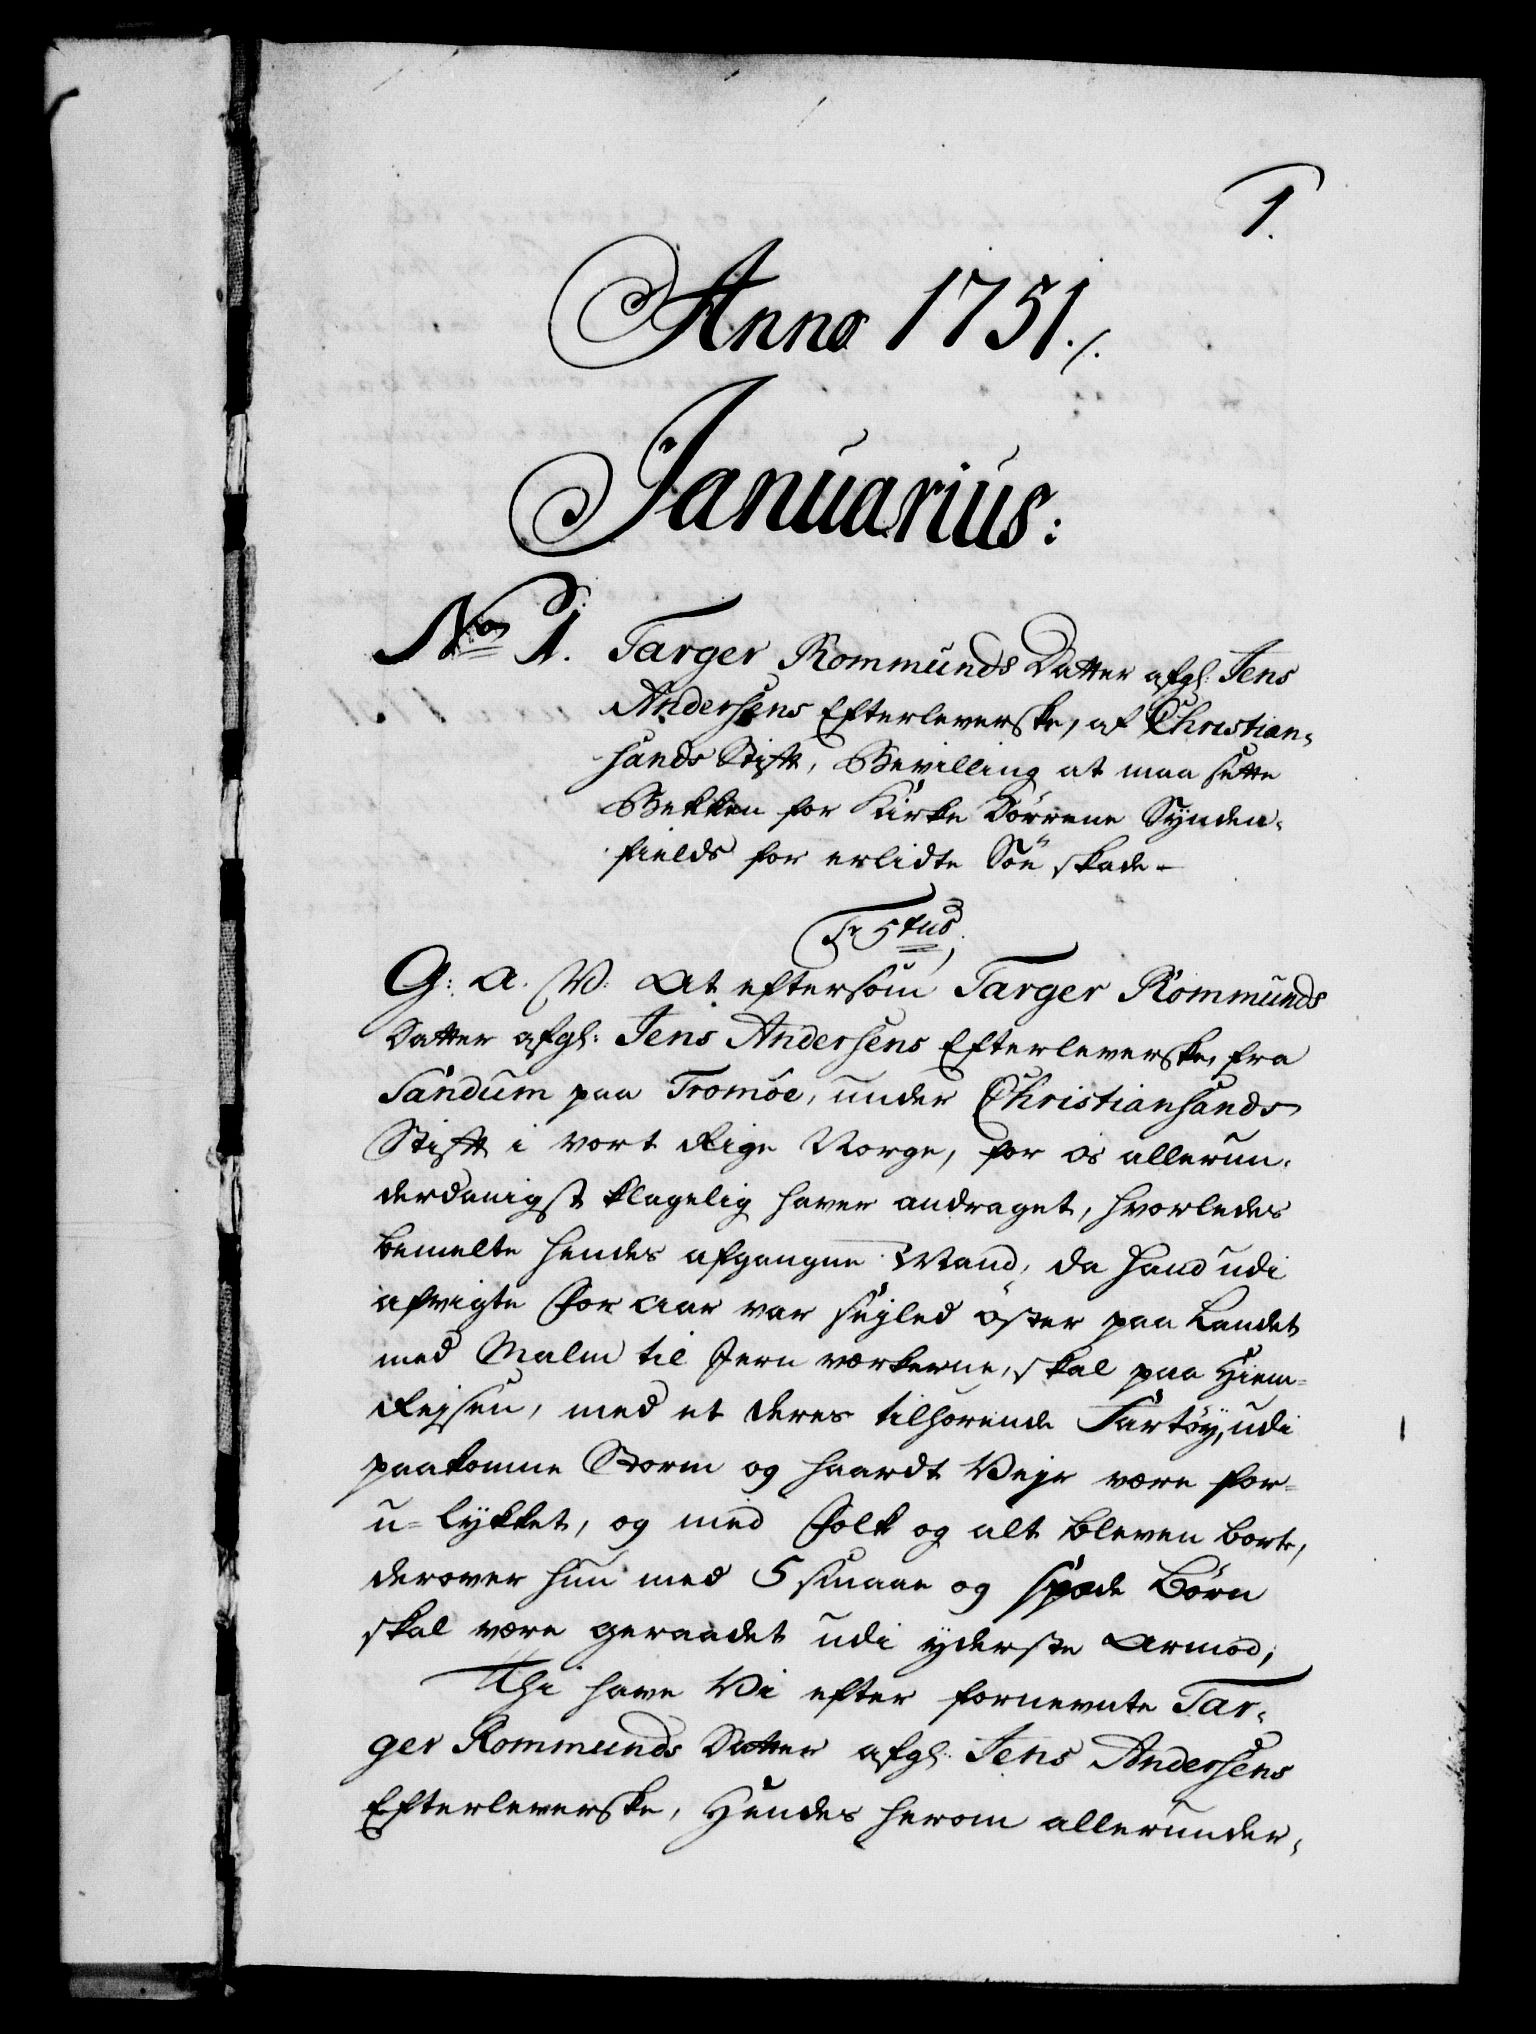 1.
Anno 1751./.
Januarius:
No 1. Targer Rommunds Datter afgl: Jens
Andersens Efterleverske, af Christian-
sands Stift, Bevilling at maa sette
Bekken for Kirke Dörrene Synden-
fields for erlidte Söe skade-
Fr 5tus
G: A. V: At eftersom Targer Rommunds
Datter afgl: Jens Andersens Efterleverske, fra
Sandum paa Tromöe, under Christiansands
Stift i vort Rige Norge, for os allerun-
derdanigst klagelig haver andraget, hvorledes
bemelte hendes afgangne Mand, da hand udi
afvigte For Aar var seyled öster paa Landet
med Malm til Jern værkerne, skal paa Hiem-
Rejsen, med et deres tilhörende Fartöy, udi
paakomne Storm og haardt Vejr være for-
u-lykket, og med Folk og alt bleven bort,
derover hun med 5 smaae og spæde Börn
skal være geraadet udi yderste Armod;
Thi have Vi efter fornevnte Tar-
ger Rommunds Datter afgl: Jens Andersens
Efterleverske, Hendes herom allerunder-